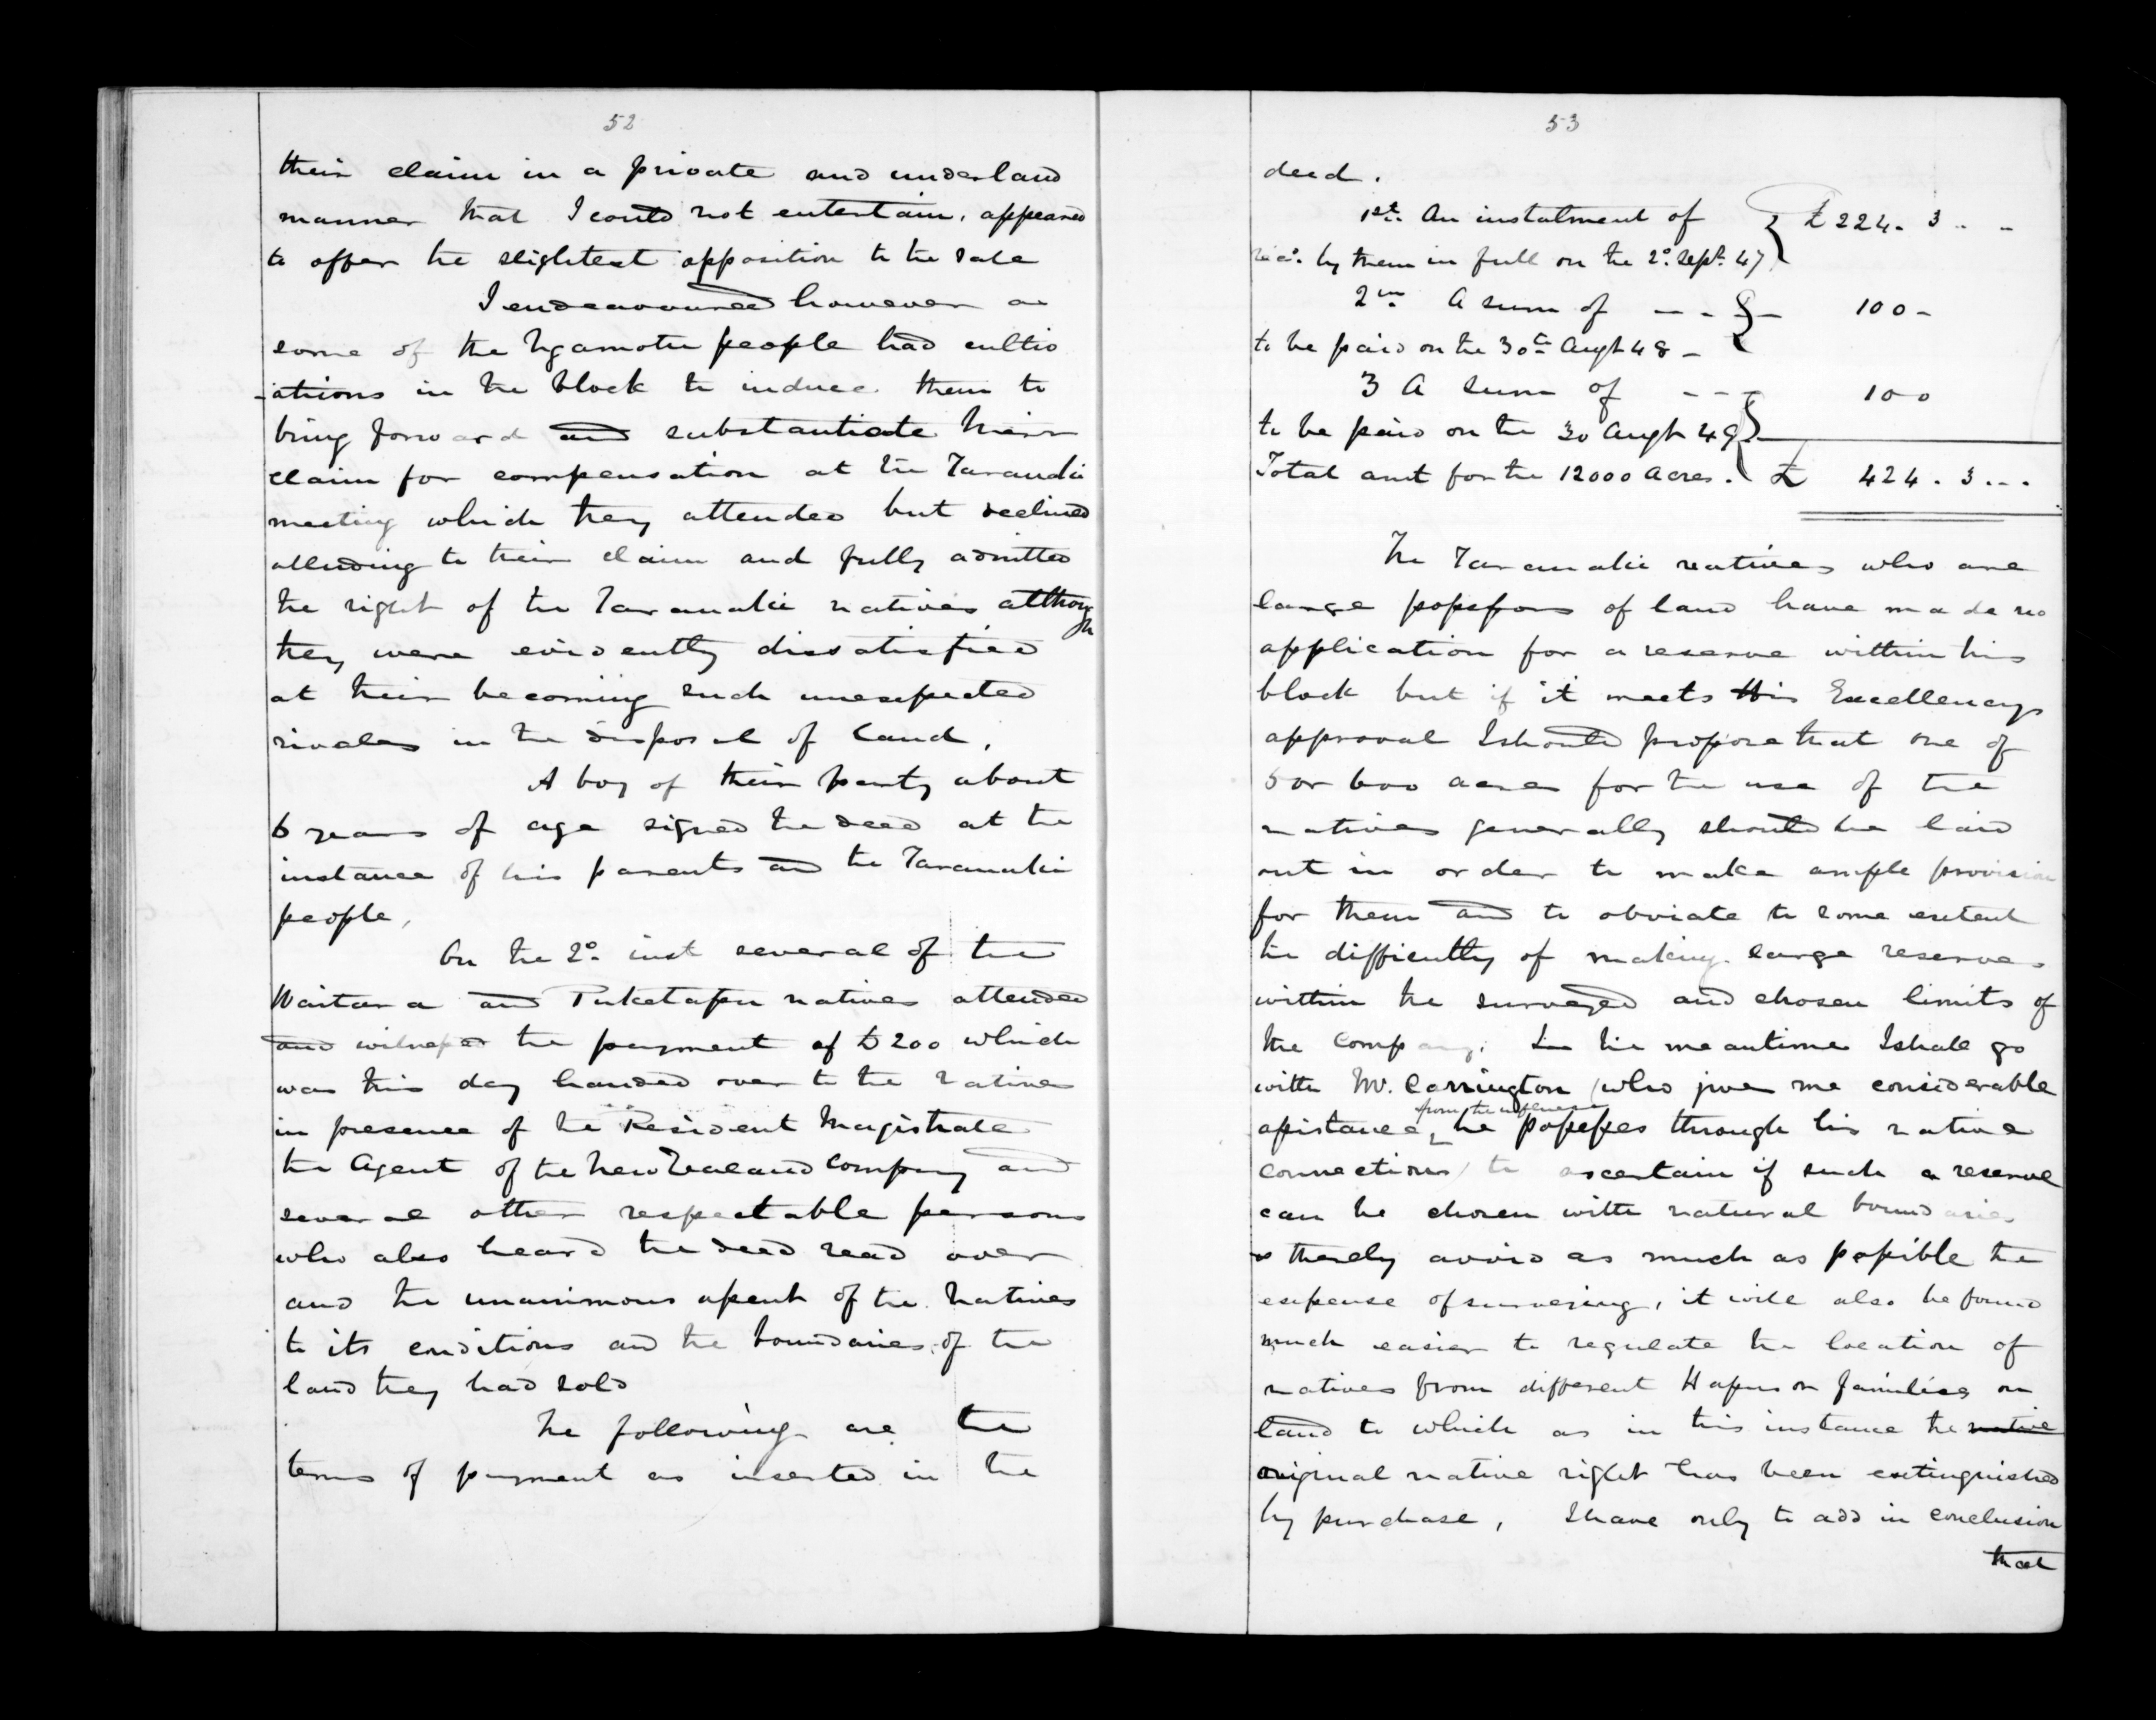 52
their claim in a private and underhand
manner that I could not entertain, appeared
to offer the slightest opposition to the sale
I endeavoured however as
some of the Ngamotu people had cultiv
-ations in the block to induce them to
bring forward and substantiate their
claim for compensation at the Taranaki
meeting which they attended but declined
alluding to their claim and fully admitted
the right of the Taranaki natives although
they were evidently dissatisfied
at their becoming such unexpected
rivales in the disposal of land.
A boy of their party about
6 years of age signed the deed at the
instance of his parents and the Taranaki
people,
On the 2d. inst several of the
Waitara and Puketapu natives attended
and witnessed the payment of £200 which
was this day handed over to the natives
in presence of the Resident Magistrate
the Agent of the New Zealand Company and
several other respectable persons
who also heard the deed read over
and the unanimous assent of the Natives
to its conditions and the boundaries of the
land they had sold
The following are the
terms of payment as inserted in the
53
deed.
1st. An instalment of } £224. 3 . . -
recd. by them in full on the 2d. Sept. 47
2nd A sum of - - - } - 100 -
to be paid on the 30th Augt 48 -
3 A sum of - - - 100
to be paid on the 30 Augt 49 }
Total amt for the 12000 Acres. £ 424 . 3 . . .
The Taranaki natives who are
large possessors of land have made no
application for a reserve within this
block but if it meets His Excellencys
approval I should propose that one of
5 or 600 acres for the use of the
natives generally should be laid
out in order to make ample provision
for them and to obviate to some extent
the difficulty of making large reserves
within the surveyed and chosen limits of
the Company. In the meantime I shall go
with Mr. Carrington (who gives me considerable
assistance from the influence he possesses through his native
connections) to ascertain if such a reserve
can be chosen with natural boundaries
& thereby avoid as much as possible the
expense of surveying, it will also be found
much easier to regulate the location of
natives from different Hapus or families on
land to which as in this instance the native
original native right has been extinguished
by purchase, I have only to add in conclusion
that